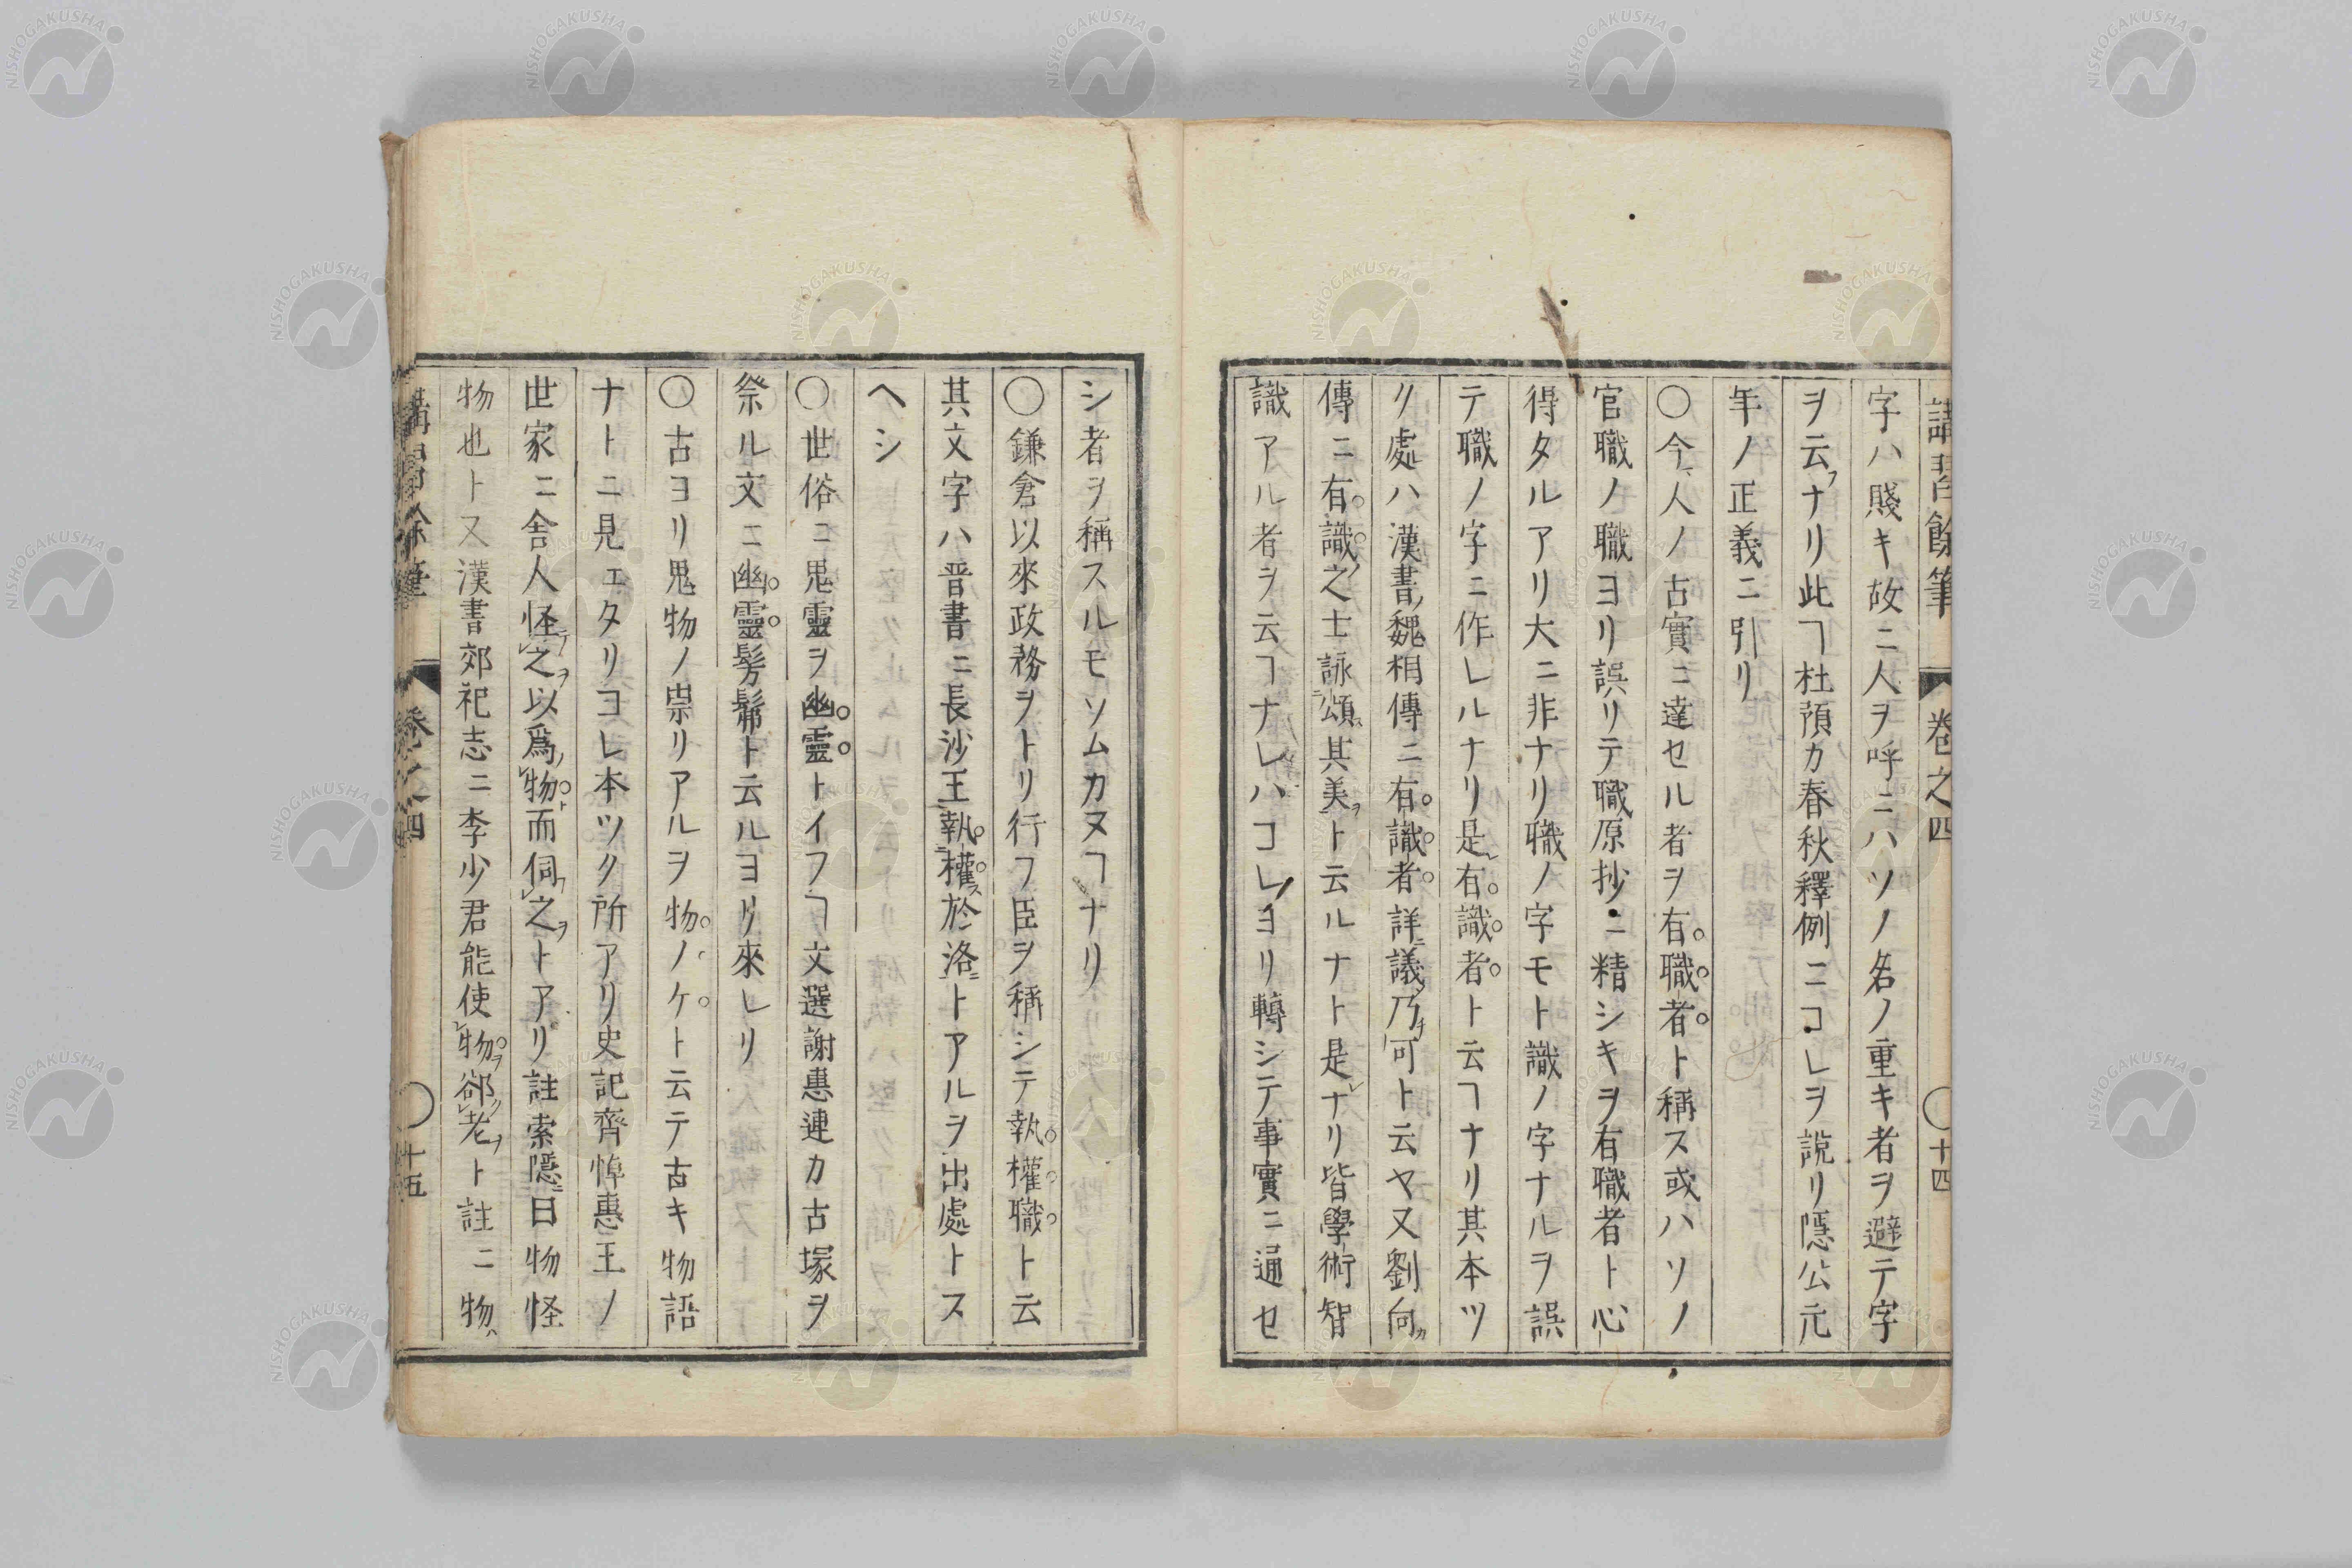 講習餘筆 卷之四 〇十四
字ハ賤キ故ニ人ヲ呼ニハソノ名ノ重キ者ヲ避テ字
ヲ云フナリ此ヿ杜預カ春秋釋例ニコレヲ說リ隱公元
年ノ正義ニ引リ
〇今人ノ古實ニ達セル者ヲ有職者ト稱ス或ハソノ
官職ノ職ヨリ誤リテ職原抄ニ精シキヲ有職者ト心
得タルアリ大ニ非ナリ職ノ字モト識ノ字ナルヲ誤
テ職ノ字ニ作レルナリ是レ有識者ト云ヿナリ其本ツ
ク處ハ漢書ノ魏相傳ニ有識者詳ニ議乃可ト云ヤ又劉向カ
傳ニ有識ノ之士詠頌其美ヲト云ルナト是レナリ皆學術智
識アル者ヲ云ヿナレハコレヨリ轉シテ事實ニ通セ
シ者ヲ稱スルモソムカヌヿナリ
〇鎌倉以來政務ヲトリ行フ臣ヲ稱シテ執權職ト云
其文字ハ晋書ニ長沙王執權ス於洛ニトアルヲ出處トス
ヘシ
〇世俗ニ鬼靈ヲ幽靈トイフヿ文選謝惠連カ古塚ヲ
祭ル文ニ幽靈髣髴ト云ルヨリ來レリ
〇古ヨリ鬼物ノ祟リアルヲ物ノケト云テ古キ物語
ナトニ見エタリコレ本ツク所アリ史記齊悼惠王ノ
世家ニ舍人怪之ヲ以爲物ト而伺之ヲトアリ註索隱ニ曰物怪
物也ト又漢書郊祀志ニ李少君能使物ヲ郤老ヲト註ニ物ハ
講習餘筆 卷之四 〇十五
NISHOGAKUSHA